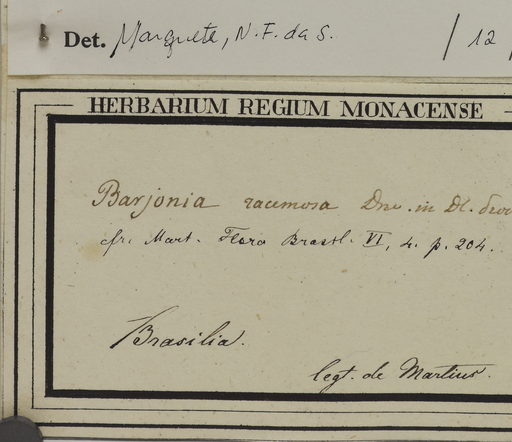 Det. Marquete, N.F. da S. / 12 /
HERBARIUM REGIUM MONACENSE
Barjonia racemosa Dne. in Dl.
cfr. Mart. Flora Brasil. VI, 4. p. 204.
Brasilia.
legt. de Martius.